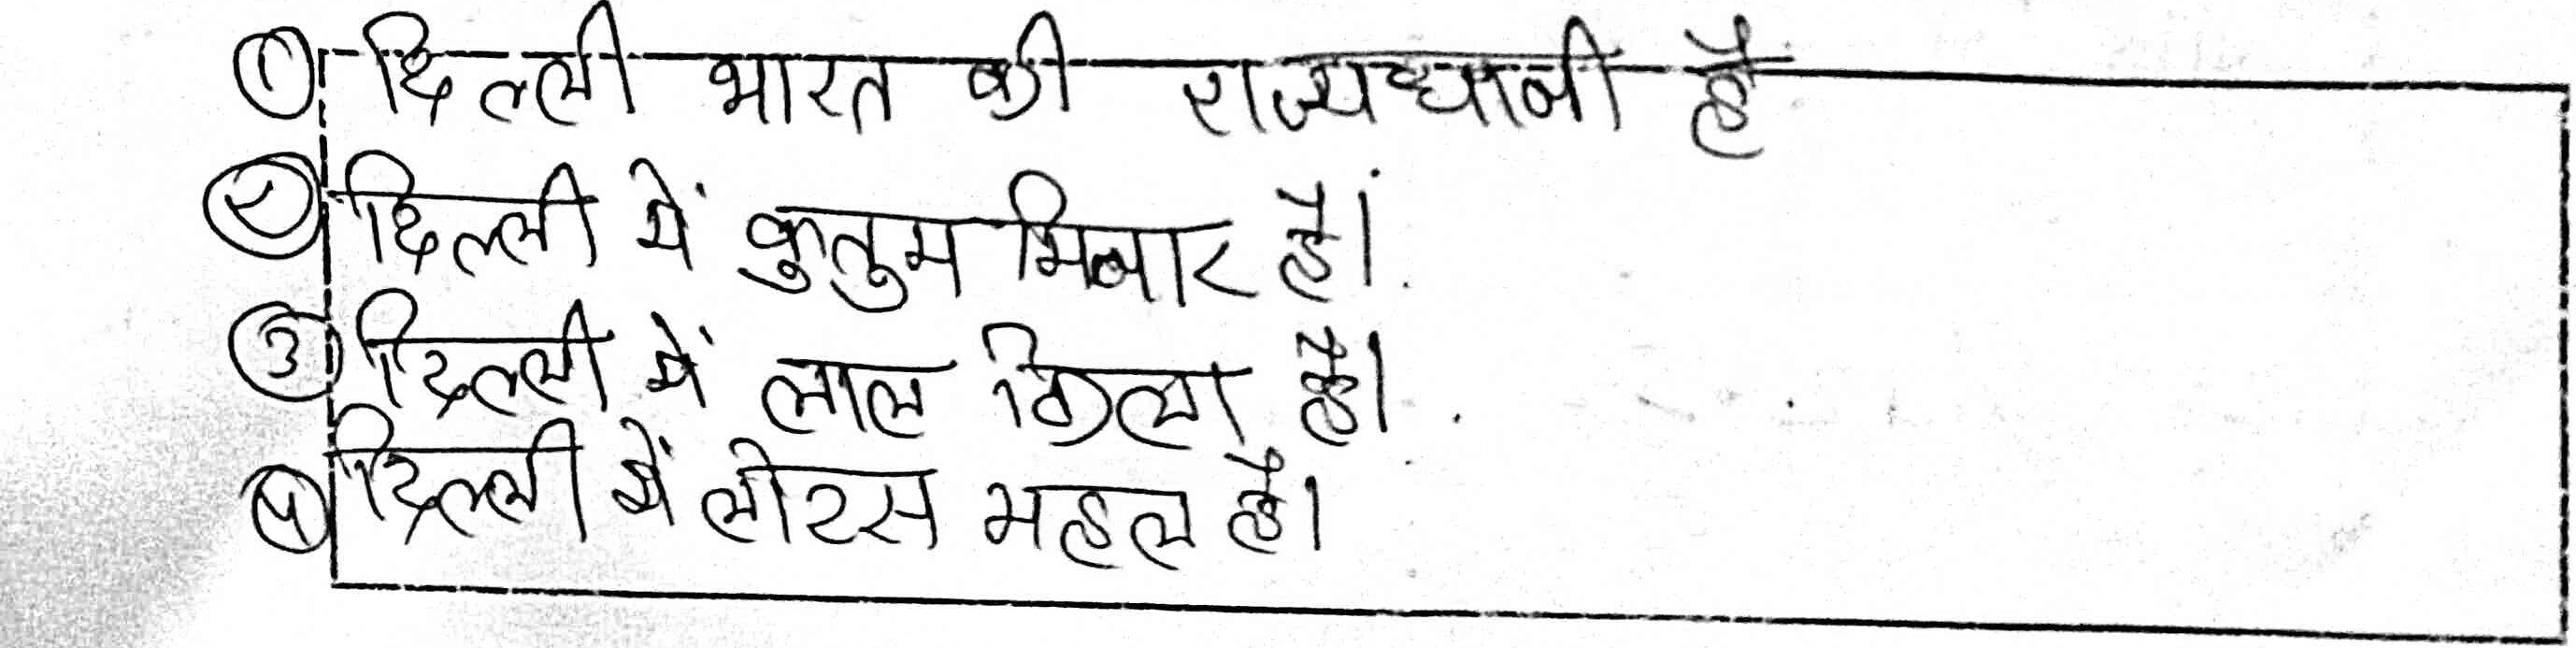 ① दिल्ली भारत की राज्यधानी है
② दिल्ली में कुतुम मिनार है।
③ दिल्ली में लाल किला है।
④ दिल्ली में लोटस महल है।